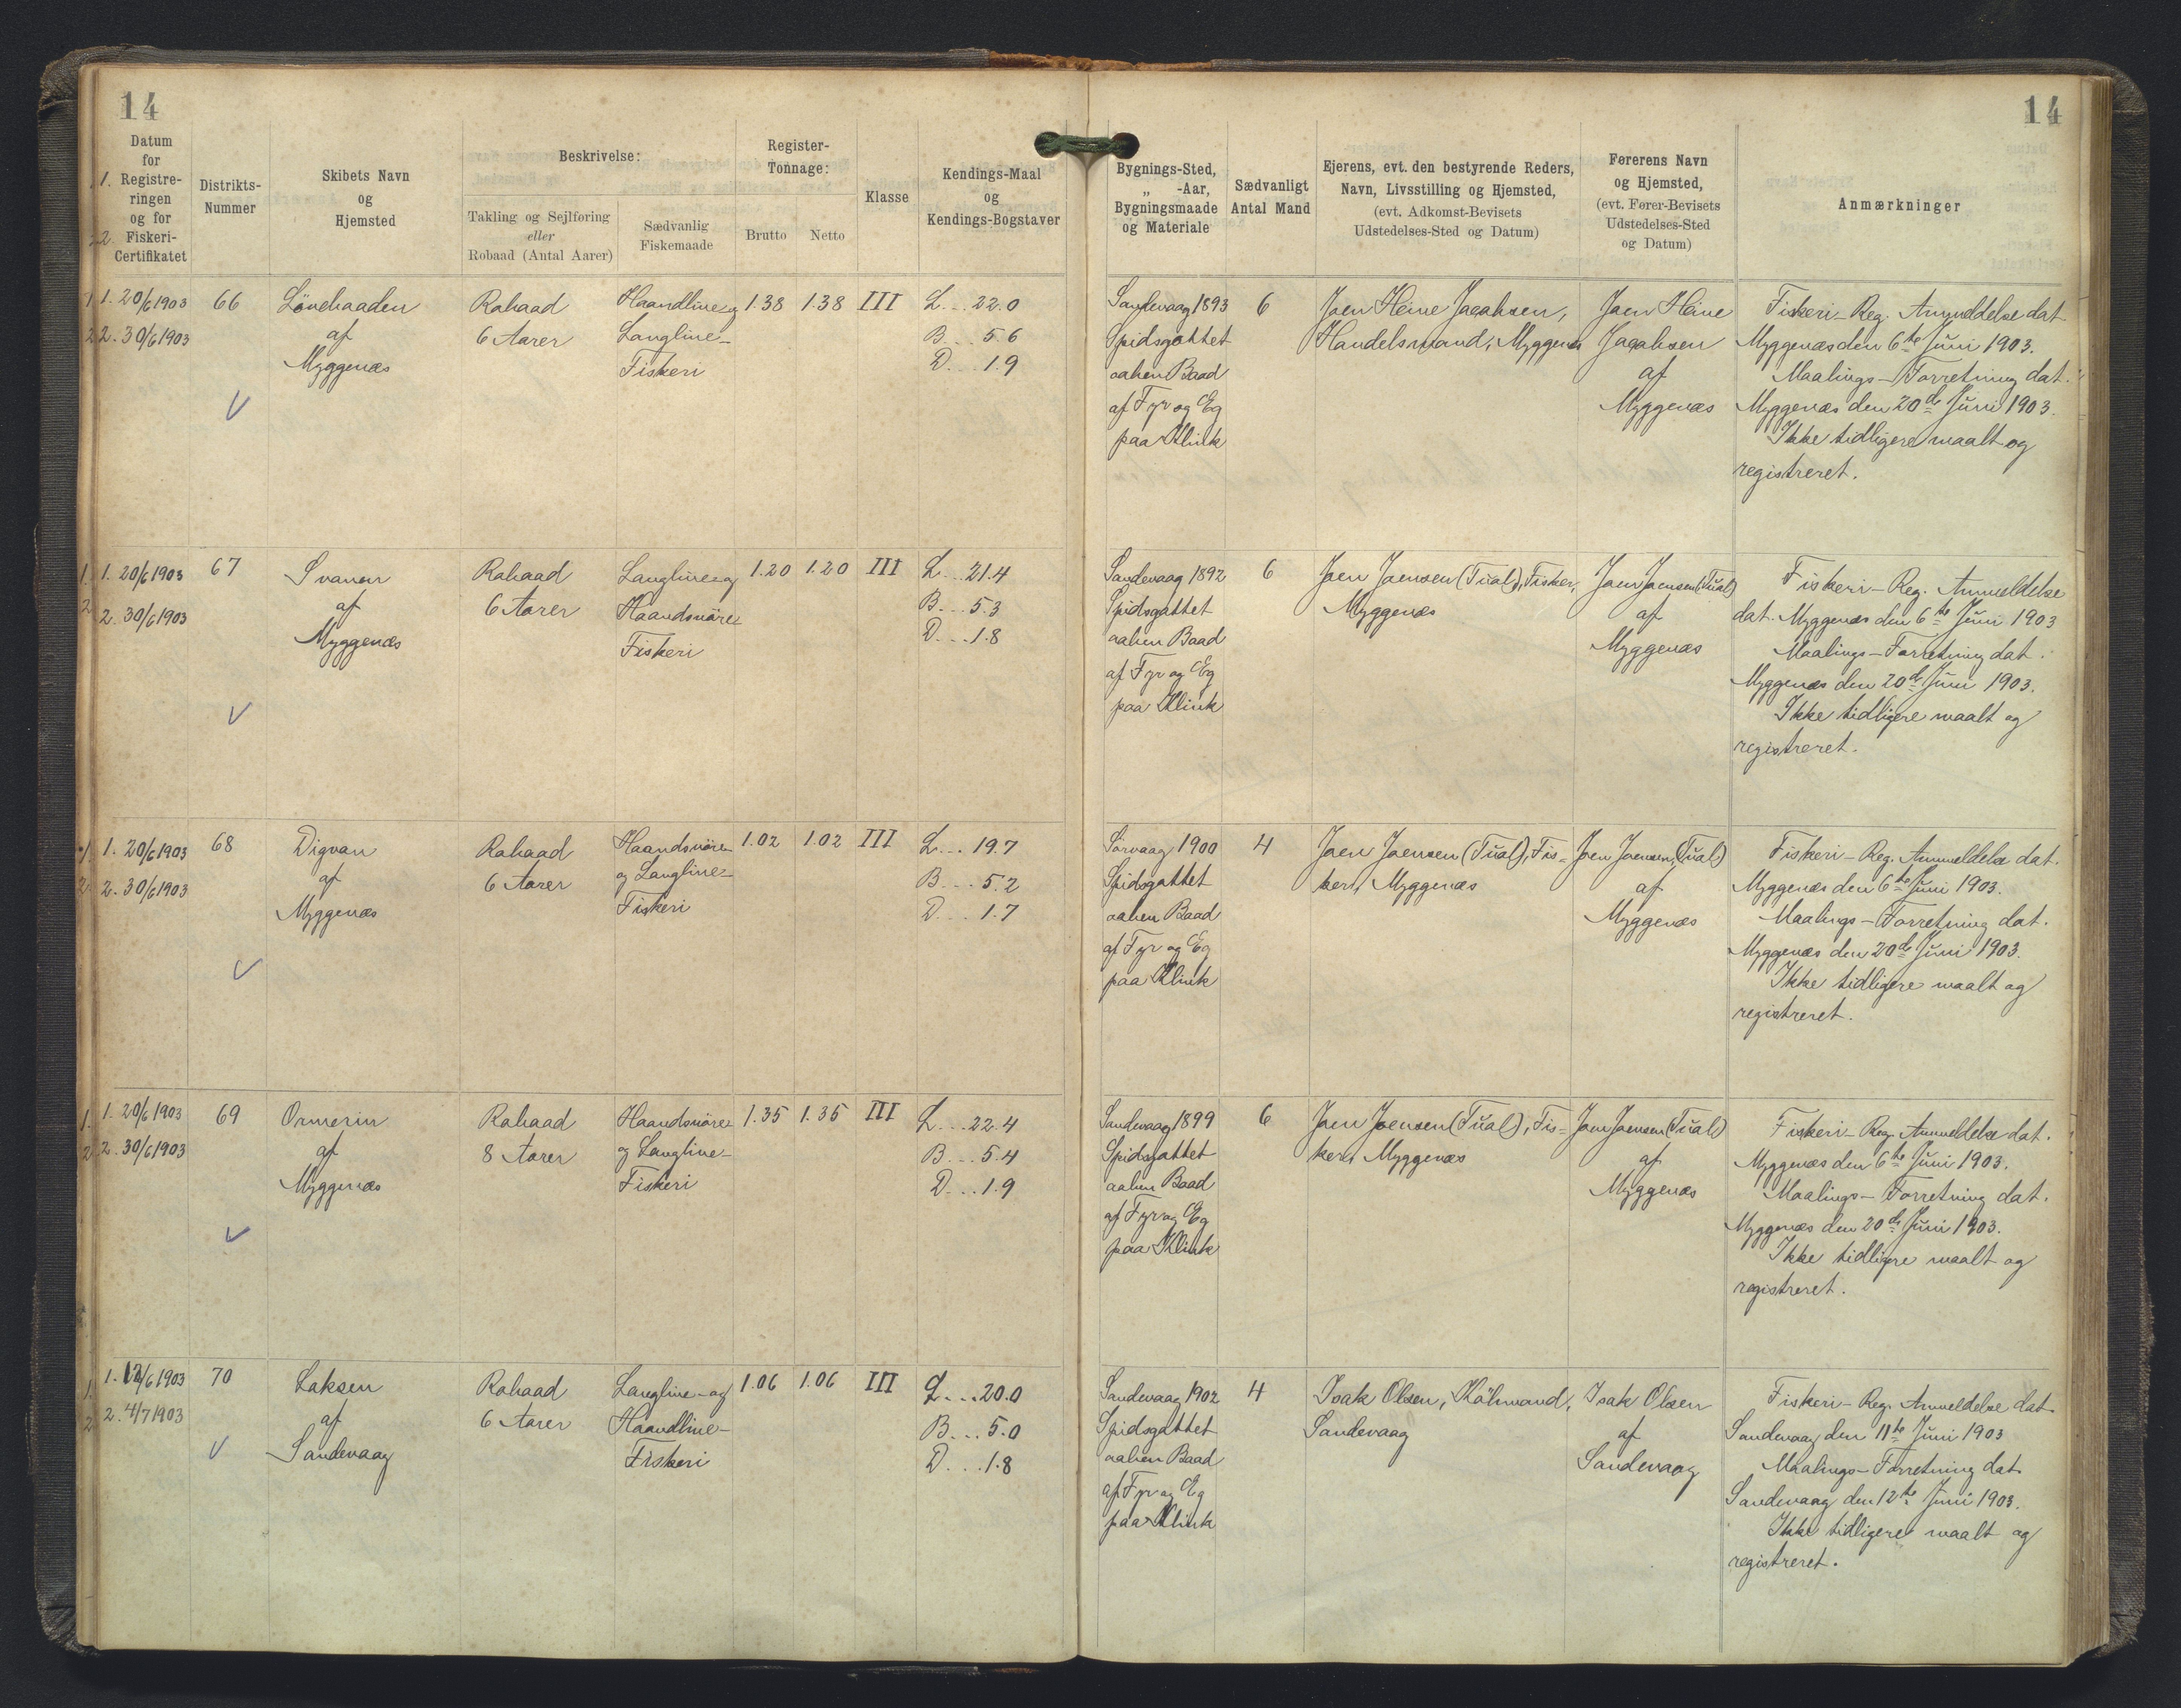 14
14
Datum
for
1. Registre-
ringen
og for
2. Fiskeri-
Certifikatet
Distrikts-
Nummer
Skibets Navn
og
Hjemsted
Beskrivelse:
Takling og Sejlføring
eller
Robaad (Antal Aarer)
Sædvanlig
Fiskemaade
Register-
Tonnage:
Brutto
Netto
Klasse
Kendings-Maal
og
Kendings-Bogstaver
Bygnings-Sted,
„ -Aar,
Bygningsmaade
og Materiale
Sædvanligt
Antal Mand
Ejerens, evt. den bestyrende Reders,
Navn, Livsstilling og Hjemsted,
(evt. Adkomst-Bevisets
Udstedelses-Sted og Datum)
Førerens Navn
og Hjemsted,
(evt. Fører-Bevisets
Udstedelses-Sted
og Datum)
Anmærkninger
1. 20/6 1903
2. 30/6 1903
66
Lönebaaden
af
Myggenæs
Robaad
6 Aarer
Haandline og
Langline-
Fiskeri
1.38
1.38
III
L... 22.0
B... 5.6
D... 1.9
Sandevaag 1893
Spidsgattet
aaben Baad
af Fyr og Eg
paa Klink
6
Joen Heine Jacobsen,
Handelsmand, Myggenæs
Joen Heine
Jacobsen
af
Myggenæs
Fiskeri-Reg. Anmeldelse dat
Myggenæs den 6te Juni 1903.
Maalings-Forretning dat.
Myggenæs den 20de Juni 1903.
Ikke tidligere maalt og
registreret.
1. 20/6 1903
2. 30/6 1903
67
Svanen
af
Myggenæs
Robaad
6 Aarer
Langline og
Haandsnöre
Fiskeri
1.20
1.20
III
L... 21.4
B... 5.3
D... 1.8
Sandevaag 1892
Spidsgattet
aaben Baad
af Fyr og Eg
paa Klink
6
Joen Joensen (Tual), Fisker,
Myggenæs
Joen Joensen (Tual)
af
Myggenæs
Fiskeri-Reg. Anmeldelse
dat. Myggenæs den 6te Juni 1903
Maalings-Forretning dat.
Myggenæs den 20de Juni 1903.
Ikke tidligere maalt og
registreret.
1. 20/6 1903
2. 30/6 1903
68
Digvan
af
Myggenæs
Robaad
6 Aarer
Haandsnöre
og Langline-
Fiskeri
1.02
1.02
III
L... 19.7
B... 5.2
D... 1.7
Sörvaag 1900
Spidsgattet
aaben Baad
af Fyr og Eg
paa Klink
4
Joen Joensen (Tual), Fis-
ker, Myggenæs
Joen Joensen (Tual)
af
Myggenæs
Fiskeri-Reg. Anmeldelse dat.
Myggenæs den 6te Juni 1903.
Maalings-Forretning dat.
Myggenæs den 20de Juni 1903.
Ikke tidligere maalt og
registreret.
1. 20/6 1903
2. 30/6 1903
69
Ormerin
af
Myggenæs
Robaad
8 Aarer
Haandsnöre
og Langline-
Fiskeri
1.35
1.35
III
L... 22.4
B... 5.4
D... 1.9
Sandevaag 1899
Spidsgattet
aaben Baad
af Fyr og Eg
paa Klink
6
Joen Joensen (Tual), Fis-
ker, Myggenæs
Joen Joensen (Tual)
af
Myggenæs
Fiskeri-Reg. Anmeldelse dat.
Myggenæs den 6te Juni 1903.
Maalings-Forretning dat.
Myggenæs den 20de Juni 1903.
Ikke tidligere maalt og
registreret.
1. 12/6 1903
2. 4/7 1903
70
Laksen
af
Sandevaag
Robaad
6 Aarer
Langline- og
Haandline-
Fiskeri
1.06
1.06
III
L... 20.0
B... 5.0
D... 1.8
Sandevaag 1902
Spidsgattet
aaben Baad
af Fyr og Eg
paa Klink
4
Isak Olsen, Kålmand,
Sandevaag
Isak Olsen
af
Sandevaag
Fiskeri-Reg. Anmeldelse dat
Sandevaag den 11te Juni 1903
Maalings-Forretning dat
Sandevaag den 12te Juni 1903.
Ikke tidligere maalt og
registreret.